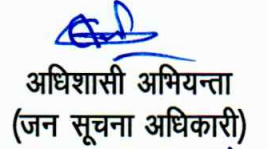 अधिशासी अभियन्ता
(जन सूचना अधिकारी)